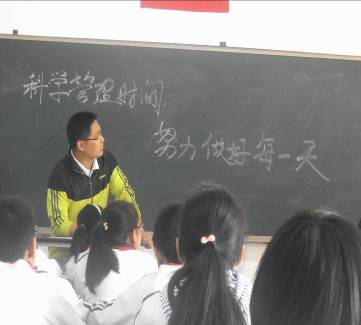 科学管理时间
努力做好每一天